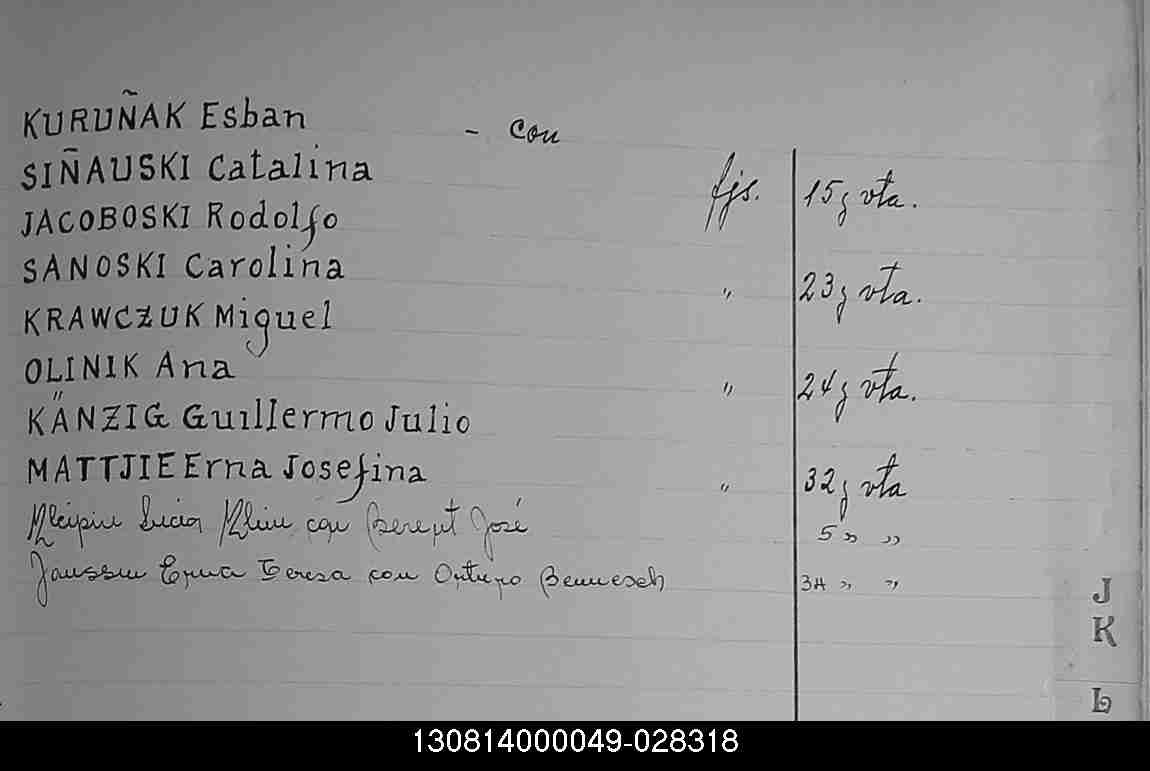 KURUÑAK Esban - con
SIÑAUSKI Catalina fjs. 15 y vta.
JACOBOSKI Rodolfo
SANOSKI Carolina " 23 y vta.
KRAWCZUK Miguel
OLINIK Ana " 24 y vta.
KÄNZIG Guillermo Julio
MATTJIE Erna Josefina " 32 y vta
Lucia con José 5 " "
Janssen Erna Teresa con Arturo 34 " "
J
K
L
130814000049-028318